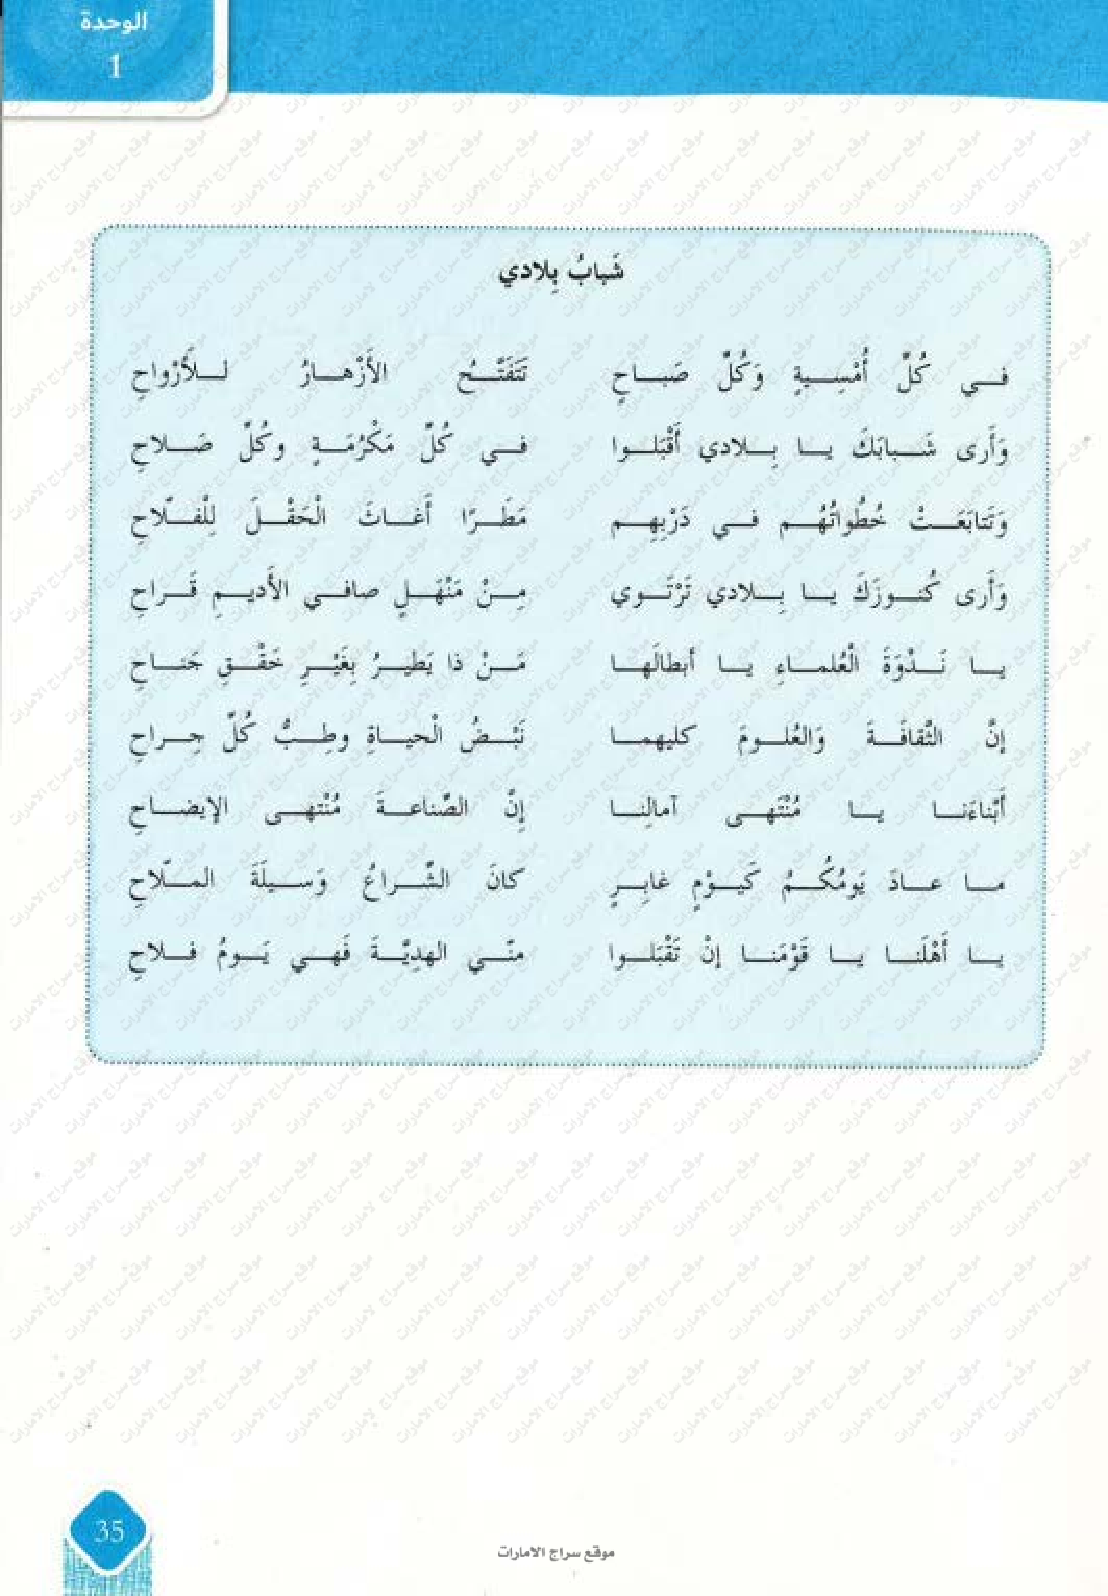 الوحدة
1
شَبابُ بِلادي
فــي كُلِّ أُمْسِــيةٍ وَكُلِّ صَبــاحِ تَتَفَتَّــحُ الأَزْهــارُ لــلأَرْواحِ
وَأَرى شَــبابَكَ يــا بِــلادي أَقْبَلــوا فــي كُلِّ مَكْرُمَــةٍ وكُلِّ صَــلاحِ
وَتَتابَعَــتْ خُطُواتُهُــم فــي دَرْبِهِــم مَطَــرًا أَغــاثَ الْحَقْــلَ لِلْفــلّاحِ
وَأَرى كُنــوزَكَ يــا بِــلادي تَرْتَــوي مِــنْ مَنْهَــلٍ صافــي الأَديــمِ قَــراحِ
يــا نَــدْوَةَ الْعُلمــاءِ يــا أبطالَهــا مَــنْ ذا يَطيــرُ بِغَيْــرِ خَفْــقِ جَنــاحِ
إنَّ الثَّقافَــةَ وَالعُلــومَ كليهمــا نَبْــضُ الْحيــاةِ وطِــبُّ كُلِّ جِــراحِ
أَبْناءَنــا يــا مُنْتَهــى آمالِنــا إِنَّ الصِّناعــةَ مُنْتهــى الإيضــاحِ
مــا عــادَ يَومُكُــمُ كَيــوْمٍ غابِــرٍ كانَ الشِّــراعُ وَســيلَةَ المــلّاحِ
يــا أَهْلَنــا يــا قَوْمَنــا إنْ تَقْبَلــوا منّــي الهدِيَّــةَ فَهــي يَــومُ فــلاحِ
35
موقع سراج الامارات